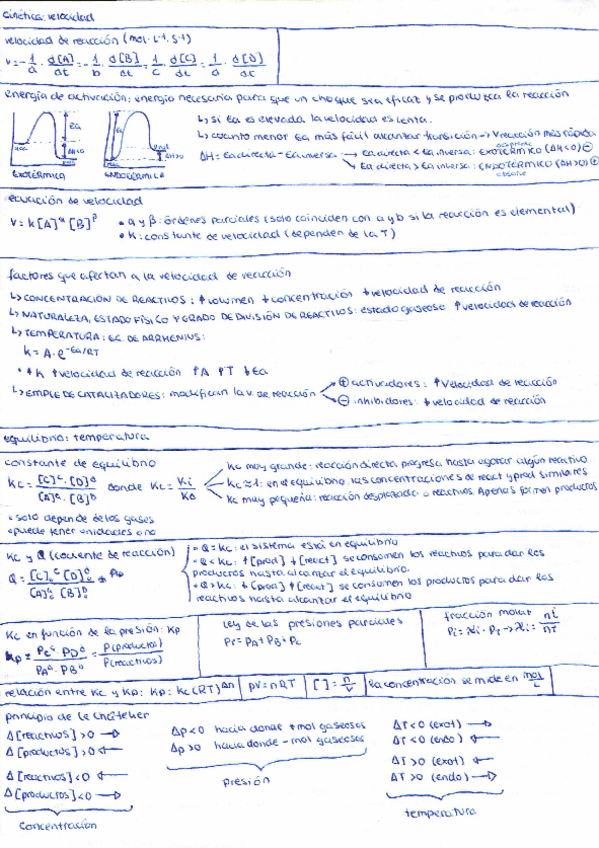 cinética: velocidad
velocidad de reacción (mol·L⁻¹·s⁻¹)
v = -1/a · d[A]/dt = -1/b · d[B]/dt = 1/c · d[C]/dt = 1/d · d[D]/dt
energía de activación: energía necesaria para que un choque sea eficaz y se produzca la reacción
↳ si Ea es elevada la velocidad es lenta.
↳ cuanto menor Ea más fácil alcanzar transición → v reacción más rápida
ΔH = Ea directa - Ea inversa → Ea directa < Ea inversa: EXOTÉRMICO (ΔH<0) ⊖
→ Ea directa > Ea inversa: ENDOTÉRMICO (ΔH>0) ⊕
absorbe
Ea
ΔH<0
EXOTÉRMICA
Ea
ΔH>0
ENDOTÉRMICA
ecuación de velocidad
v = k[A]^α [B]^β
• α y β: órdenes parciales (solo coinciden con a y b si la reacción es elemental)
• K: constante de velocidad (dependen de la T)
factores que afectan a la velocidad de reacción
↳ CONCENTRACIÓN DE REACTIVOS: ↑ volumen ↓ concentración ↓ velocidad de reacción
↳ NATURALEZA, ESTADO FÍSICO Y GRADO DE DIVISIÓN DE REACTIVOS: estado gaseoso ↑ velocidad de reacción
↳ TEMPERATURA: EC. DE ARRHENIUS:
k = A·e^-Ea/RT
• ↑k ↑velocidad de reacción ↑A ↑T ↓Ea
↳ EMPLE DE CATALIZADORES: modifican la v. de reacción
⊕ activadores: ↑ velocidad de reacción
⊖ inhibidores: ↓ velocidad de reacción
equilibrio: temperatura
constante de equilibrio
Kc = [C]^c·[D]^d / [A]^a·[B]^b donde Kc =
Kc muy grande: reacción directa, progresa hasta agotar algún reactivo
Kc ≈ 1: en el equilibrio, las concentraciones de react y prod similares
Kc muy pequeña: reacción desplazada a reactivos. Apenas forman productos
• solo depende de los gases
• puede tener unidades o no
Kc y Q (cociente de reacción)
Q = [C]^c [D]^d / [A]^a [B]^b
• Q = Kc: el sistema está en equilibrio
• Q < Kc: ↑[prod] ↓[react] se consumen los reactivos para dar los
productos hasta alcanzar el equilibrio.
• Q > Kc: ↓[prod] ↑[react] se consumen los productos para dar los
reactivos hasta alcanzar el equilibrio
Kc en función de la presión: Kp
Kp = Pc^c · PD^d / PA^a · PB^b = P(productos) / P(reactivos)
ley de las presiones parciales
PT = PA + PB + PC
fracción molar
Pi = χi · PT → χi = ni/nT
relación entre Kc y Kp: Kp = Kc(RT)^Δn
PV = nRT
[ ] = n/V
la concentración se mide en mol/L
principio de Le Châtelier
Δ[reactivos]>0 →
Δ[productos]>0 ←
Δ[reactivos]<0 ←
Δ[productos]<0 →
concentración
Δp<0 hacia donde + mol gaseosos
Δp>0 hacia donde - mol gaseosos
presión
ΔT<0 (exot) →
ΔT<0 (endo) ←
ΔT>0 (exot) ←
ΔT>0 (endo) →
temperatura